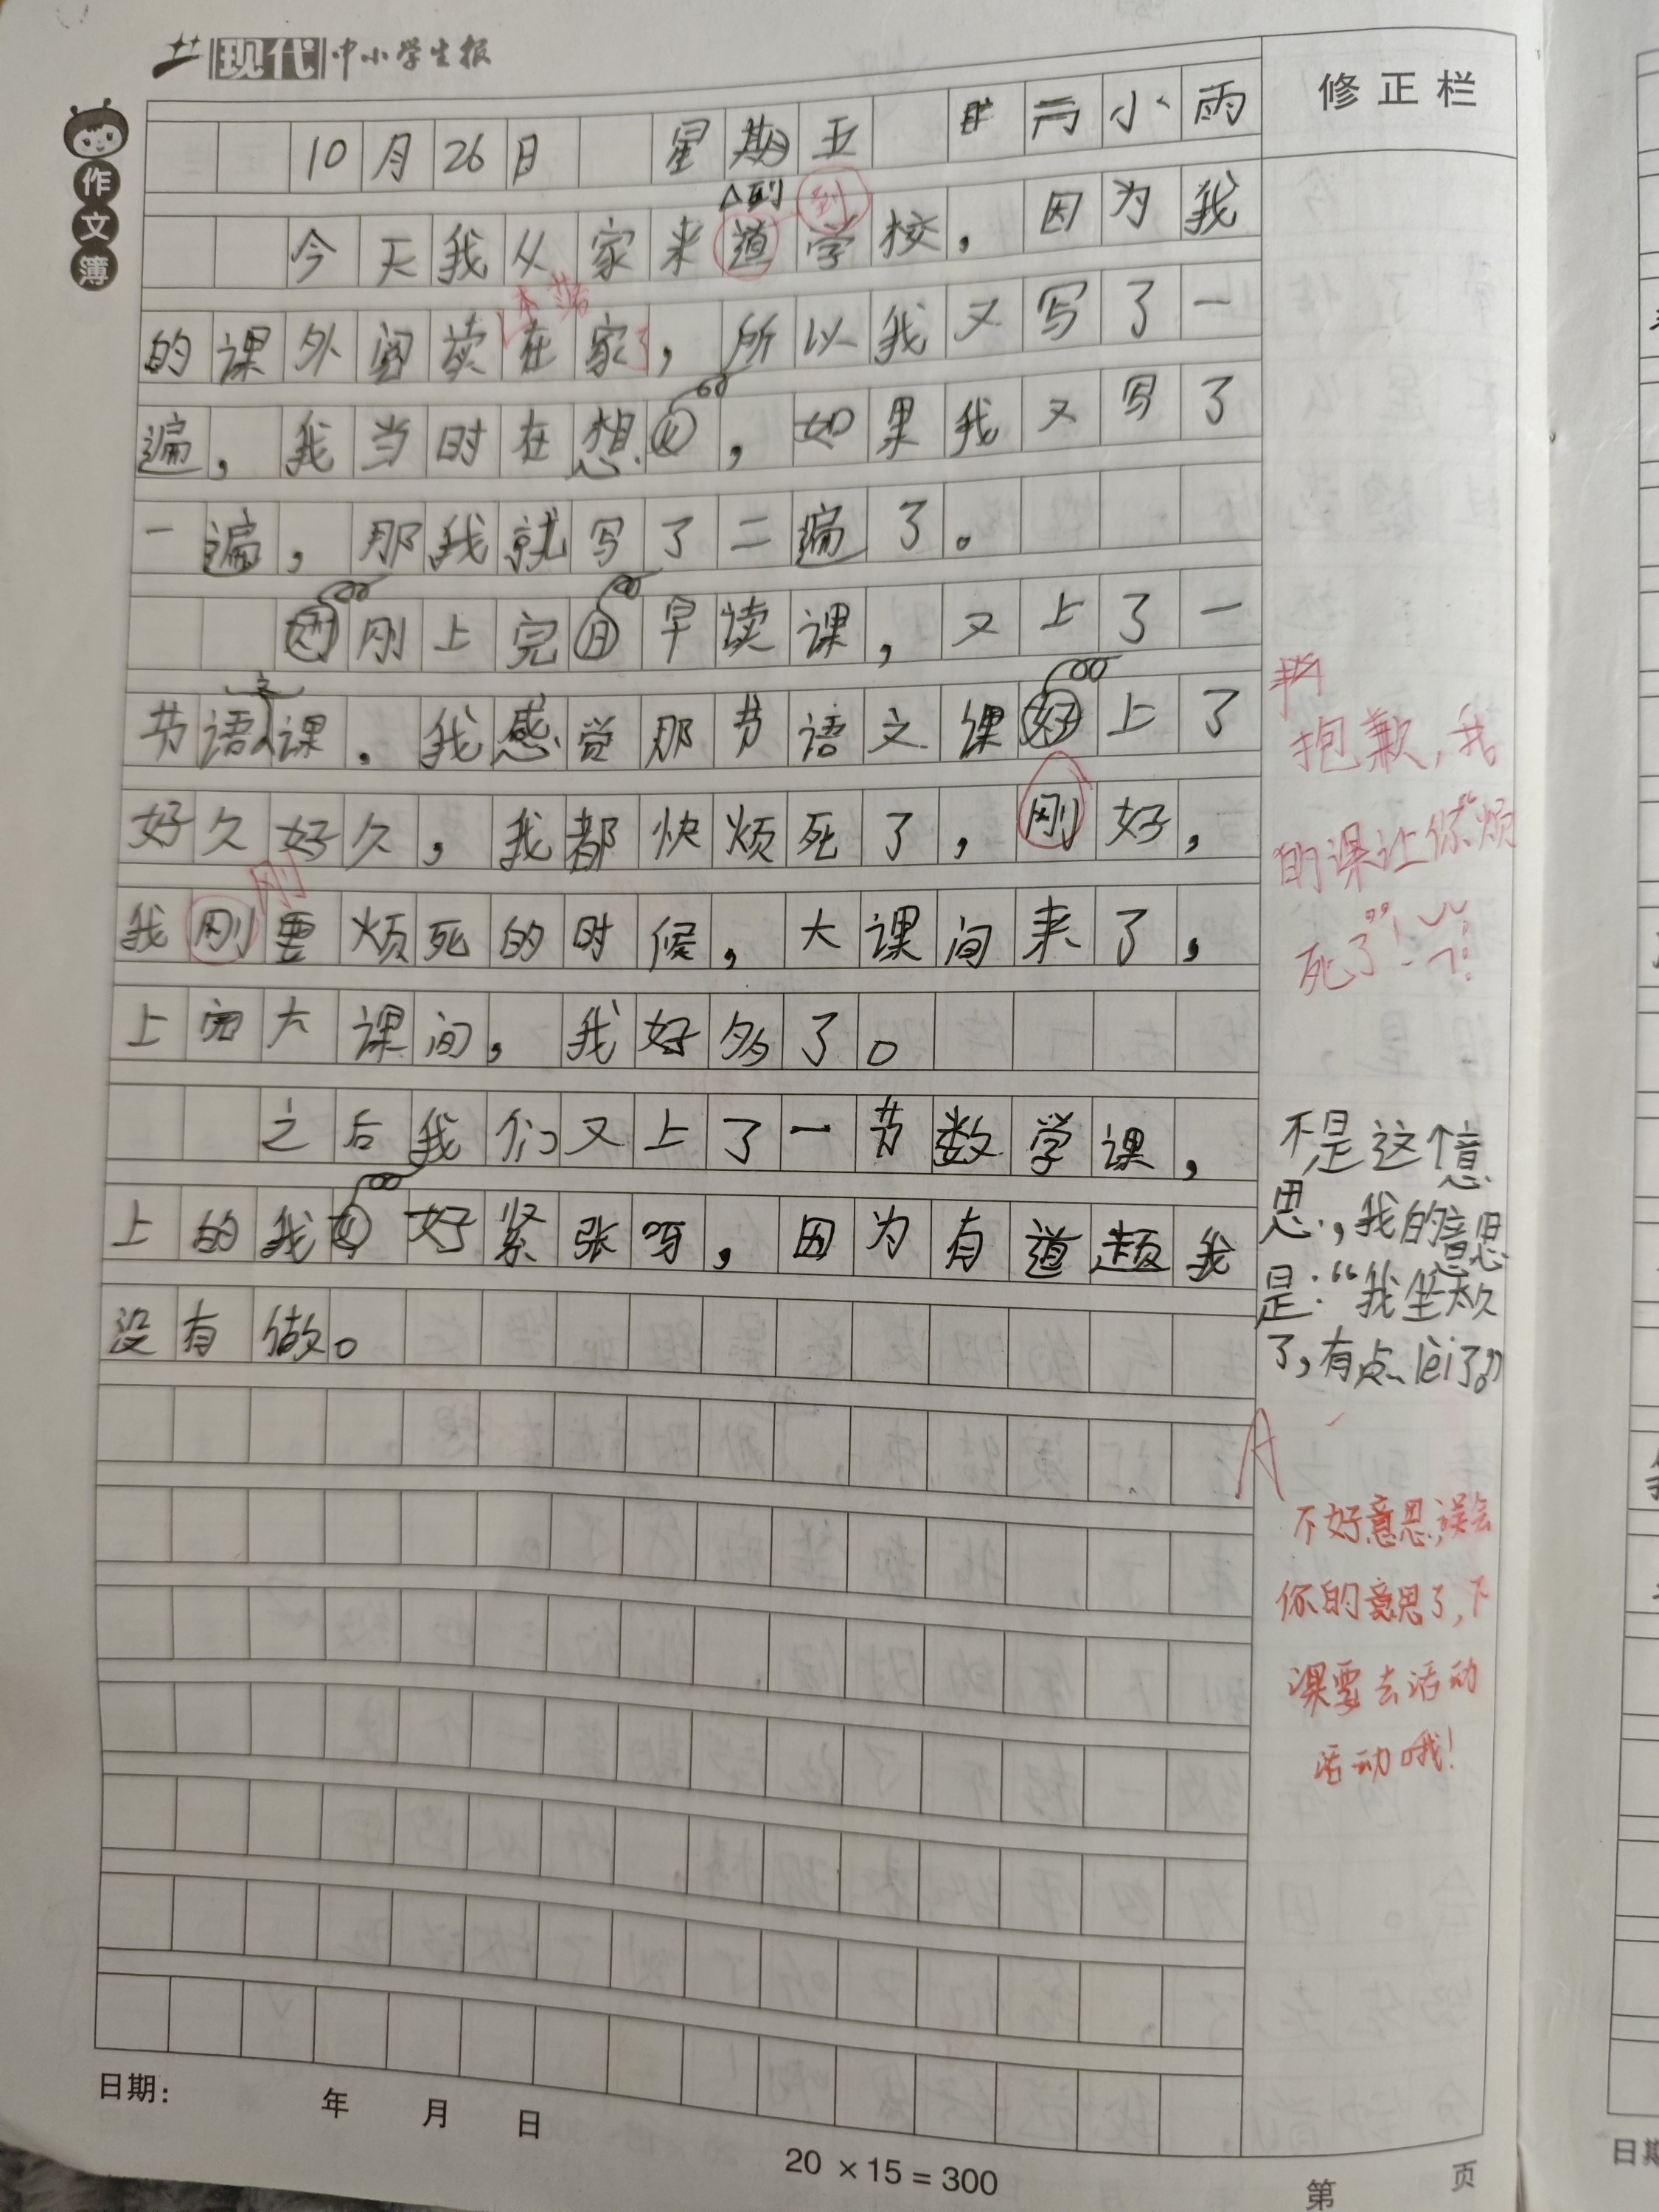 现代中小学生报
作文簿
修正栏
10月26日 星期五 小雨
△到 到
今天我从家来道学校，因为我
本落
的课外阅读在家了，所以我又写了一
遍，我当时在想，如果我又写了
一遍，那我就写了二遍了。
刚上完早读课，又上了一
文
节语课．我感觉那节语文课上了
好久好久，我都快烦死了，刚好，
刚
我刚要烦死的时候，大课间来了，
上完大课间，我好多了。
之后我们又上了一节数学课，
上的我好紧张呀，因为有道题我
没有做。
抱歉，我
的课让你“烦
死了”！
不是这个意
思，我的意思
是：“我坐太久
了，有点lèi了。”
A
不好意思，误会
你的意思了，下
课要去活动
活动哦！
日期： 年 月 日
20×15=300
第 页
日期